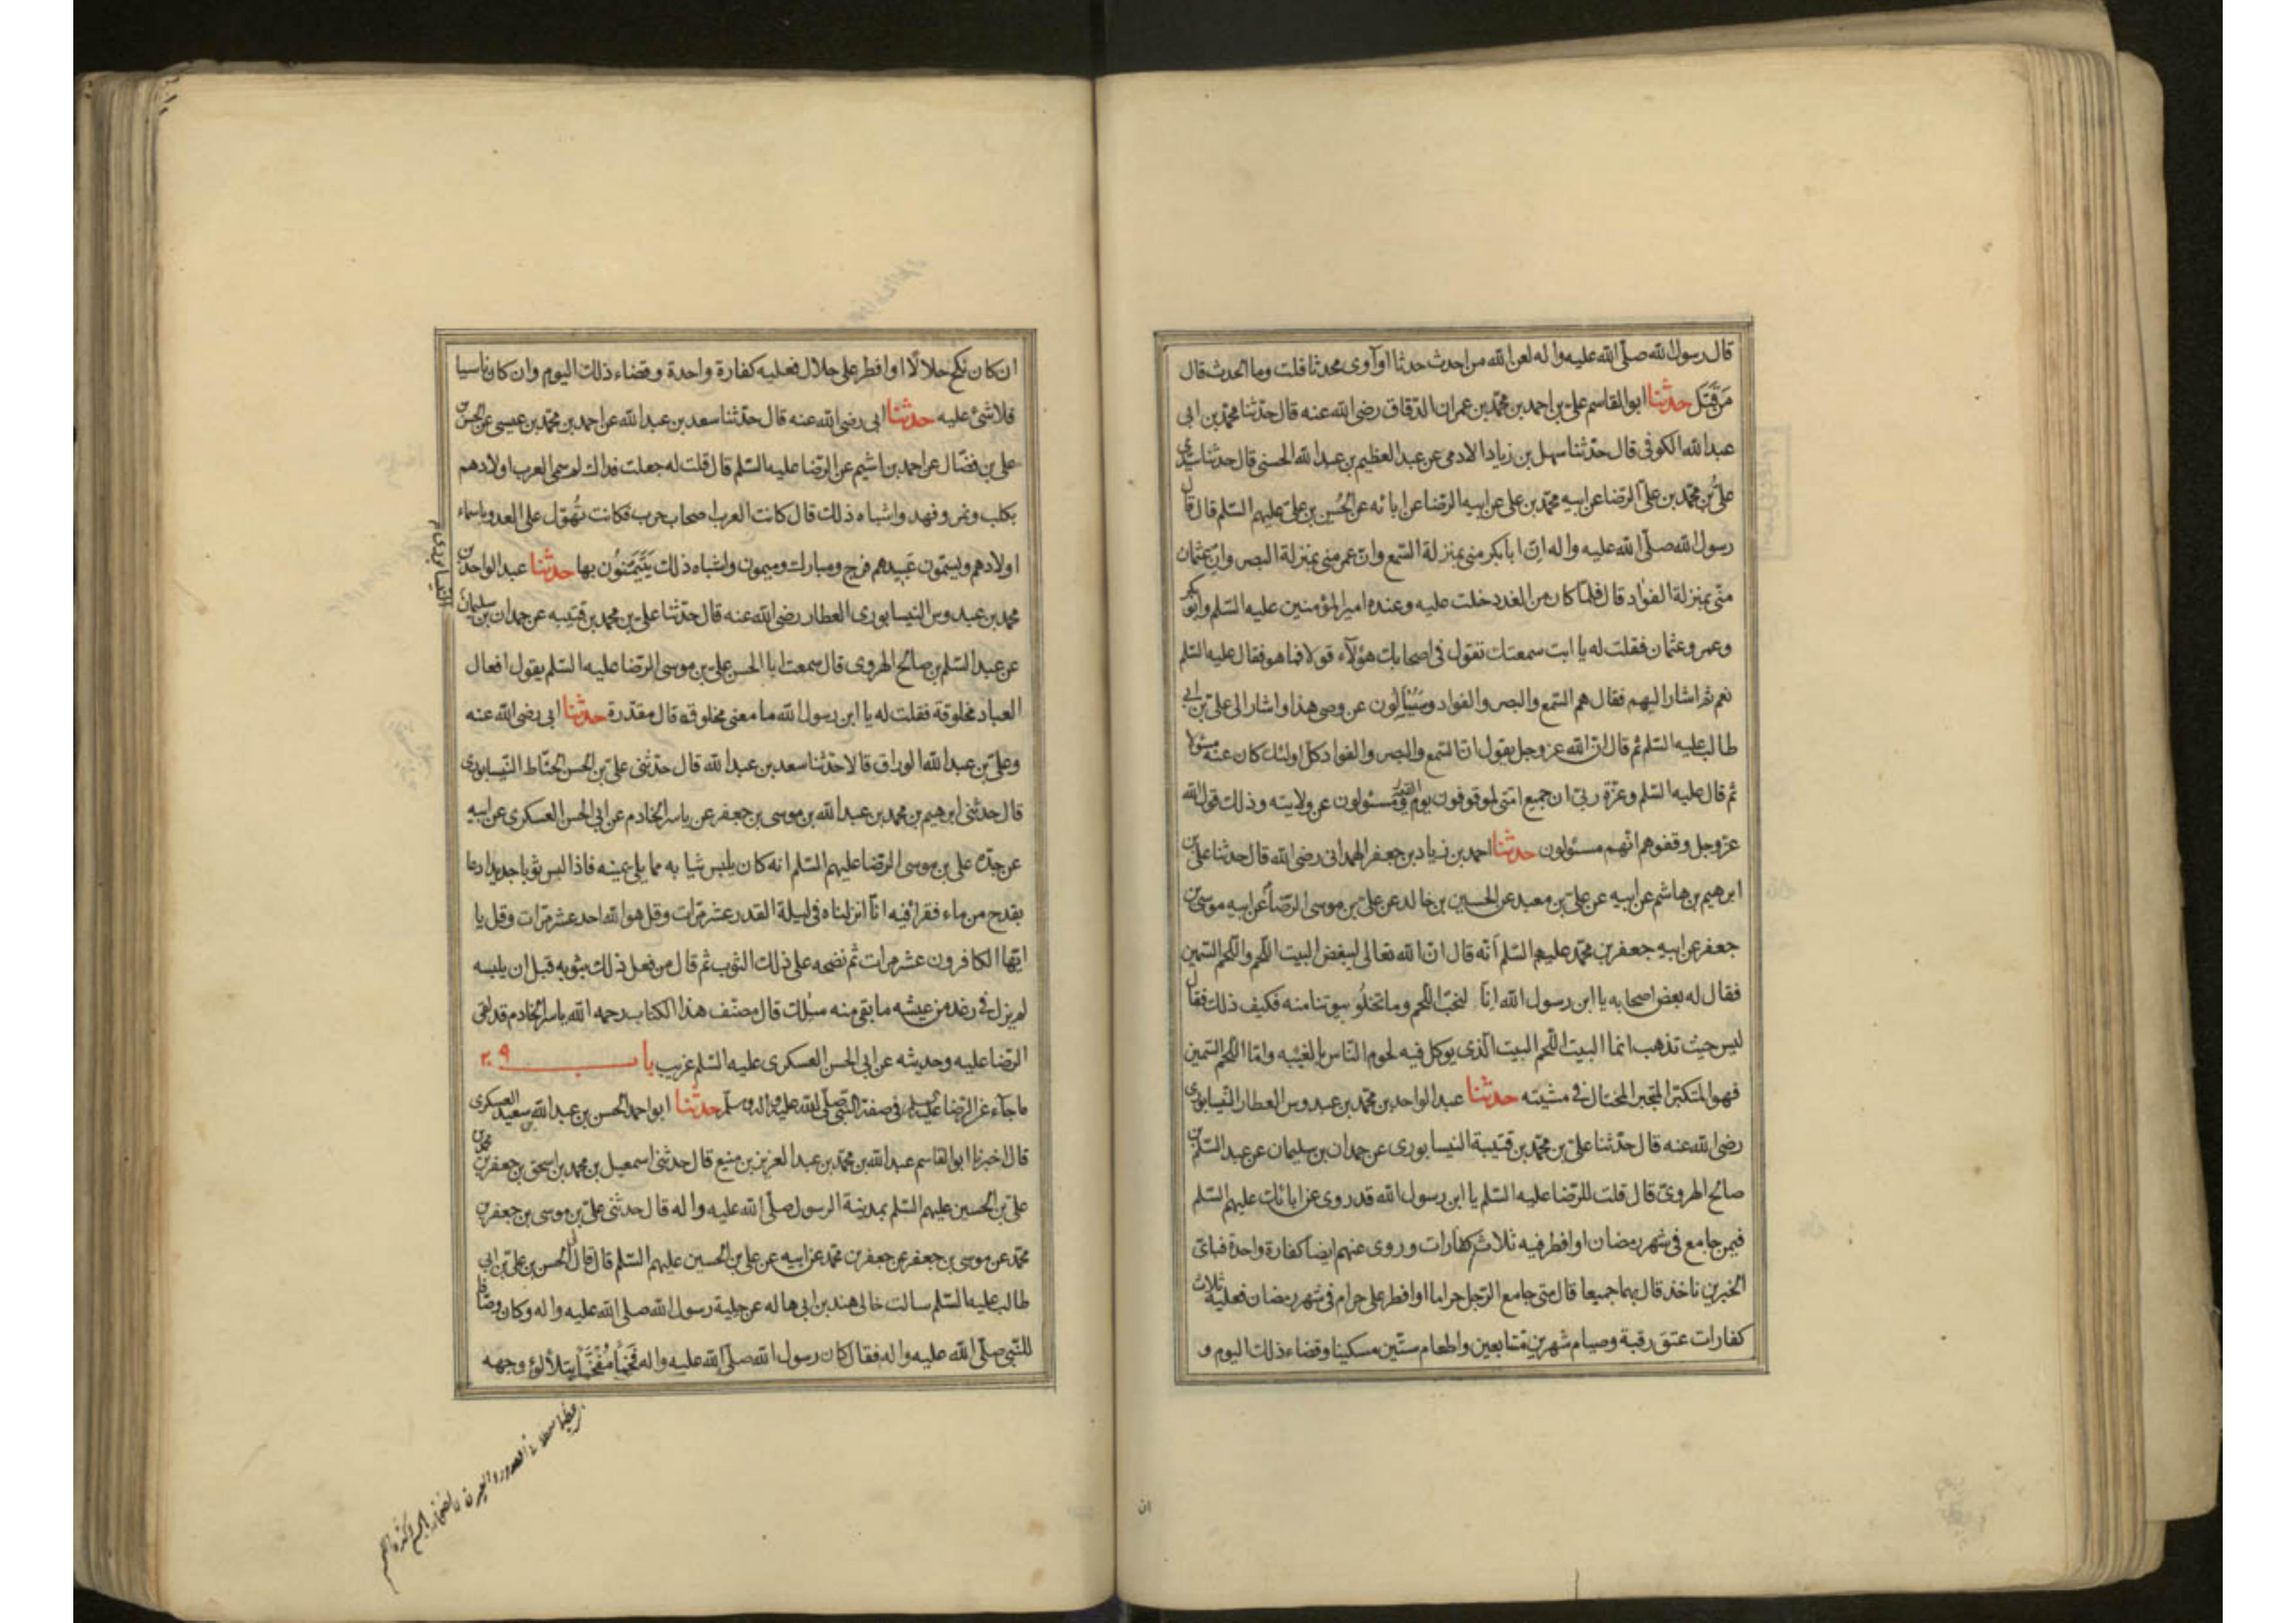 قال رسول الله صلّى الله عليه واله لعن الله من احدث حدثا او آوى محدثا قلت وما الحدث قال
مَن قَتَل حدثنا ابو القاسم علىّ بن احمد بن محمّد بن عمران الدقاق رضى الله عنه قال حدّثنا محمّد بن ابى
عبد الله الكوفى قال حدّثنا سهل بن زياد الادمى عن عبد العظيم بن عبد الله الحسنى قال حدثنا سيدى
علىُّ بن محمّد بن علىّ الرّضا عن ابيه محمّد بن على عن ابيه الرضا عن ابائه عن الحُسين بن علىّ عليهم السّلم قال قال
رسول الله صلّى الله عليه واله انّ ابا بكر منى بمنزلة السّمع وانّ عمر منى بمنزلة البصر وانّ عثمان
منّى بمنزلة الفؤاد قال فلمّا كان من الغد دخلت عليه وعنده امير المؤمنين عليه السّلم وابو بكر
وعمر وعثمان فقلت له يا ابت سمعتك تقول فى اصحابك هؤلآء قولا فما هو فقال عليه السّلم
نعم ثم اشار اليهم فقال هم السّمع والبصر والفواد وسَيُسْاَلون عن وصى هذا واشار الى علىّ بن ابى
طالب عليه السّلم ثم قال انّ الله عز وجل يقول انّ السّمع والبصر والفواد كلّ اولئك كان عنه مسئولا
ثم قال عليه السّلم وعزّة ربّى ان جميع امّتى لموقوفون يوم القيمة ومسئولون عن ولايته وذلك قول الله
عزّ وجل وقفوهم انّهم مسئولون حدثنا احمد بن زياد بن جعفر الهمدانى رضى الله قال حدثنا علىّ بن
ابرهيم بن هاشم عن ابيه عن علىّ بن معبد عن الحسين بن خالد عن علىّ بن موسى الرّضا عن ابيه موسى بن
جعفر عن ابيه جعفر بن محمّد عليهم السّلم انّه قال انّ الله تعالى ليبغض البيت اللّحم واللّحم السّمين
فقال له بعض اصحابه يا ابن رسول الله انّا لنحبّ اللّحم وما تخلُو بيوتنا منه فكيف ذلك فقال
ليس حيث تذهب انما البيت اللّحم البيت الّذى يوكل فيه لحوم النّاس بالغيبه وامّا اللّحم السّمين
فهو المتكبّر المتجبر المختال فى مشيته حدثنا عبد الواحد بن محمّد بن عبدوس العطار النّيسابورى
رضى الله عنه قال حدّثنا علىّ بن محمّد بن قتيبة النيسابورى عن حمدان بن سليمان عن عبد السّلم بن
صالح الهروىّ قال قلت للرّضا عليه السّلم يا ابن رسول الله قد روى عن ابائك عليهم السّلم
فيمن جامع فى شهر رمضان او افطر فيه ثلاث كفّارات وروى عنهم ايضا كفارة واحدة فباىّ
الخبرين ناخذ قال بهما جميعا قال متى جامع الرّجل حراما او افطر على حرام فى شهر رمضان فعليه ثلاث
كفارات عتق رقبة وصيام شهرين متتابعين واطعام ستّين مسكينا وقضاء ذلك اليوم و
ان
ان كان نكح حلالًا او افطر على حلال فعليه كفارة واحدة وقضاء ذلك اليوم وان كان ناسيا
فلا شئ عليه حدثنا ابى رضى الله عنه قال حدّثنا سعد بن عبد الله عن احمد بن محمّد بن عيسى عن الحسن بن
على بن فضّال عن احمد بن اشيم عن الرّضا عليه السّلم قال قلت له جعلت فداك لم سمى العرب اولادهم
بكلب ونمر وفهد واشباه ذلك قال كانت العرب اصحاب حرب فكانت تُهوّل على العدو باسماء
اولادهم ويسمّون عَبيدهم فرج ومبارك وميمون واشباه ذلك يَتَيَمّنُون بها حدثنا عبد الواحد بن
محمد بن عبدوس النيسابورى العطار رضى الله عنه قال حدّثنا علىّ بن محمد بن قتيبه عن حمدان بن سليمان
عن عبد السّلم بن صالح الهروى قال سمعت ابا الحسن علىّ بن موسى الرّضا عليه السّلم يقول افعال
العباد مخلوقة فقلت له يا ابن رسول الله ما معنى مخلوقه قال مقدّرة حدثنا ابى رضى الله عنه
وعلىّ بن عبد الله الوراق قالا حدّثنا سعد بن عبد الله قال حدّثنى علىّ بن الحسن الخيّاط النّيسابورى
قال حدثنى ابرهيم بن محمد بن عبد الله بن موسى بن جعفر عن ياسر الخادم عن ابى الحسن العسكرى عن ابيه
عن جدّه على بن موسى الرّضا عليهم السّلم انه كان يلبس ثيابه مما يلى يمينه فاذا لبس ثوبا جديدا دعا
بقدح من ماء فقرا فيه انّا انزلناه فى ليلة القدر عشر مرّات وقل هو الله احد عشر مرّات وقل يا
ايّها الكافرون عشر مرات ثم نضحه على ذلك الثوب ثم قال من فعل ذلك بثوبه قبل ان يلبسه
لم يزل فى رغد من عيشه ما بقى منه سلك قال مصنّف هذا الكتاب رحمه الله ياسر الخادم قد لقى
الرّضا عليه وحديثه عن ابى الحسن العسكرى عليه السّلم غريب باب ٢٩
ما جآء عن الرّضا عليه السلم فى صفة النّبى صلّى الله عليه واله وسلّم حدّثنا ابو احمد الحسن بن عبد الله بن سعيد العسكرى
قال اخبرنا ابو القاسم عبد الله بن محمّد بن عبد العزيز بن منيع قال حدثنى اسمعيل بن محمد بن اسحق بن جعفر بن محمد بن
علىّ بن الحسين عليهم السّلم بمدينة الرسول صلّى الله عليه واله قال حدثنى علىّ بن موسى بن جعفر بن
محمّد عن موسى بن جعفر عن جعفر بن محمّد عن ابيه عن على بن الحسين عليهم السّلم قال قال الحسن بن علىّ بن ابى
طالب عليه السّلم سالت خالى هند بن ابى هاله عن حِلية رسول الله صلى الله عليه واله وكان وصّافا
للنّبى صلّى الله عليه واله فقال كان رسول الله صلّى الله عليه واله فَخْمًا مُفَخّمًا يتلألؤ وجهه